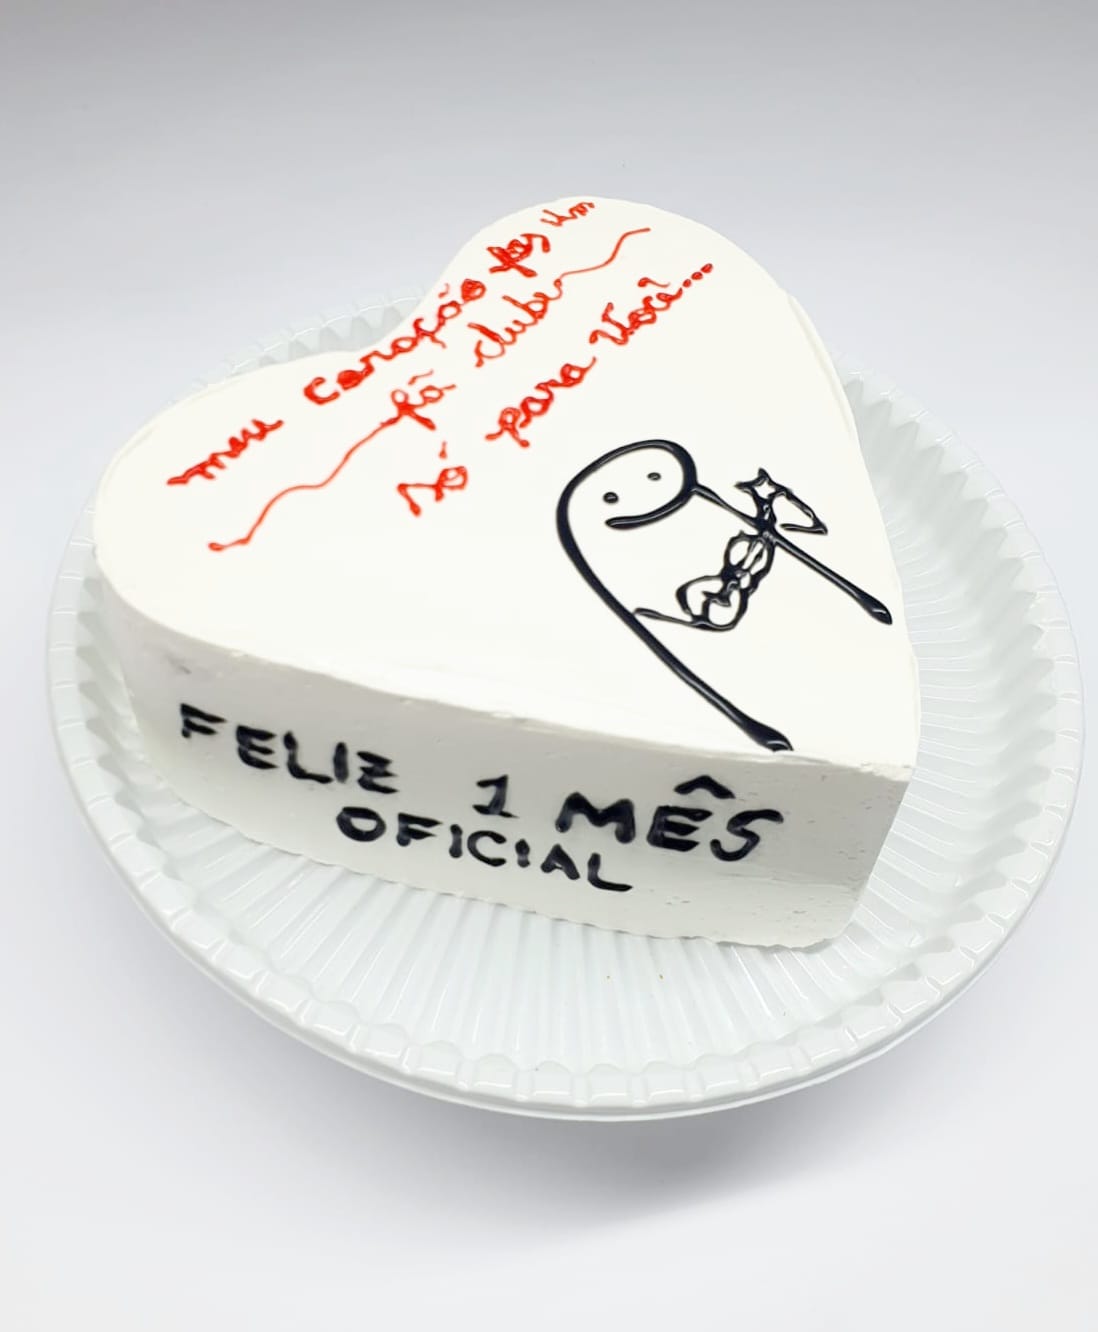 meu Coração fez um
fã clube
só para Você...
FELIZ 1 MÊS
OFICIAL